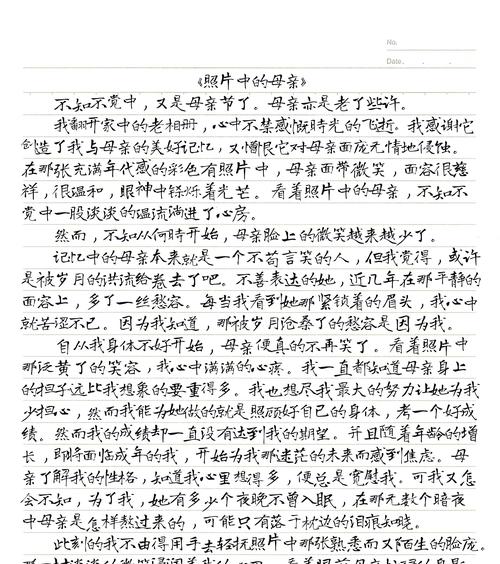 No.
Date.
《照片中的母亲》
不知不觉中，又是母亲节了。母亲亦是老了些许。
我翻开家中的老相册，心中不禁感慨時光的飞逝。我感谢它
创造了我与母亲的美好记忆，又憎恨它对母亲面庞无情地侵蚀。
在那张充满年代感的彩色有照片中，母亲面带微笑，面容很慈
祥，很温和，眼神中铄烁着光芒。看着照片中的母亲，不知不
觉中一股淡淡的温流淌进了心房。
然而，不知从何時开始，母亲脸上的微笑越来越少了。
记忆中的母亲本来就是一个不苟言笑的人，但我觉得，或许
是被岁月的洪流给卷去了吧。不善表达的她，近几年在那平静的
面容上，多了一丝愁容。每当我看到她那紧锁着的眉头，我心中
就苦涩不已。因为我知道，那被岁月沧桑了的愁容是因为我。
自从我身体不好开始，母亲便真的不再笑了。看着照片中
那泛黄了的笑容，我心中满满的心疼。我一直都知道母亲身上
的担子远比我想象的要重得多。我也想尽我最大的努力让她为我
少担心，然而我能为她做的就是照顾好自己的身体，考一个好成
绩。然而我的成绩却一直没有达到我的期望。并且随着年龄的增
长，即将面临成年的我，开始为那迷茫的未来而感到焦虑。母
亲了解我的性格，知道我心里想得多，便总是宽慰我。可我又怎
会不知，为了我，她有多少个夜晚不曾入眠，在那无数个暗夜
中母亲是怎样熬过来的，可能只有落于枕边的泪痕知晓。
此刻的我不由得用手去轻抚照片中那张熟悉而又陌生的脸庞。